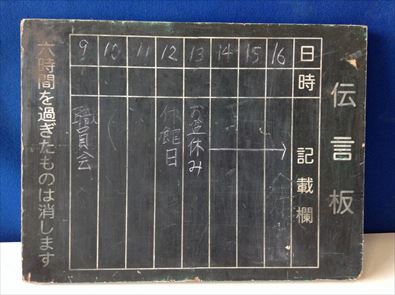 伝言板
日時 記載欄
16
15
14
13 お盆休み
12 休館日
11
10
9 職員会
六時間を過ぎたものは消します